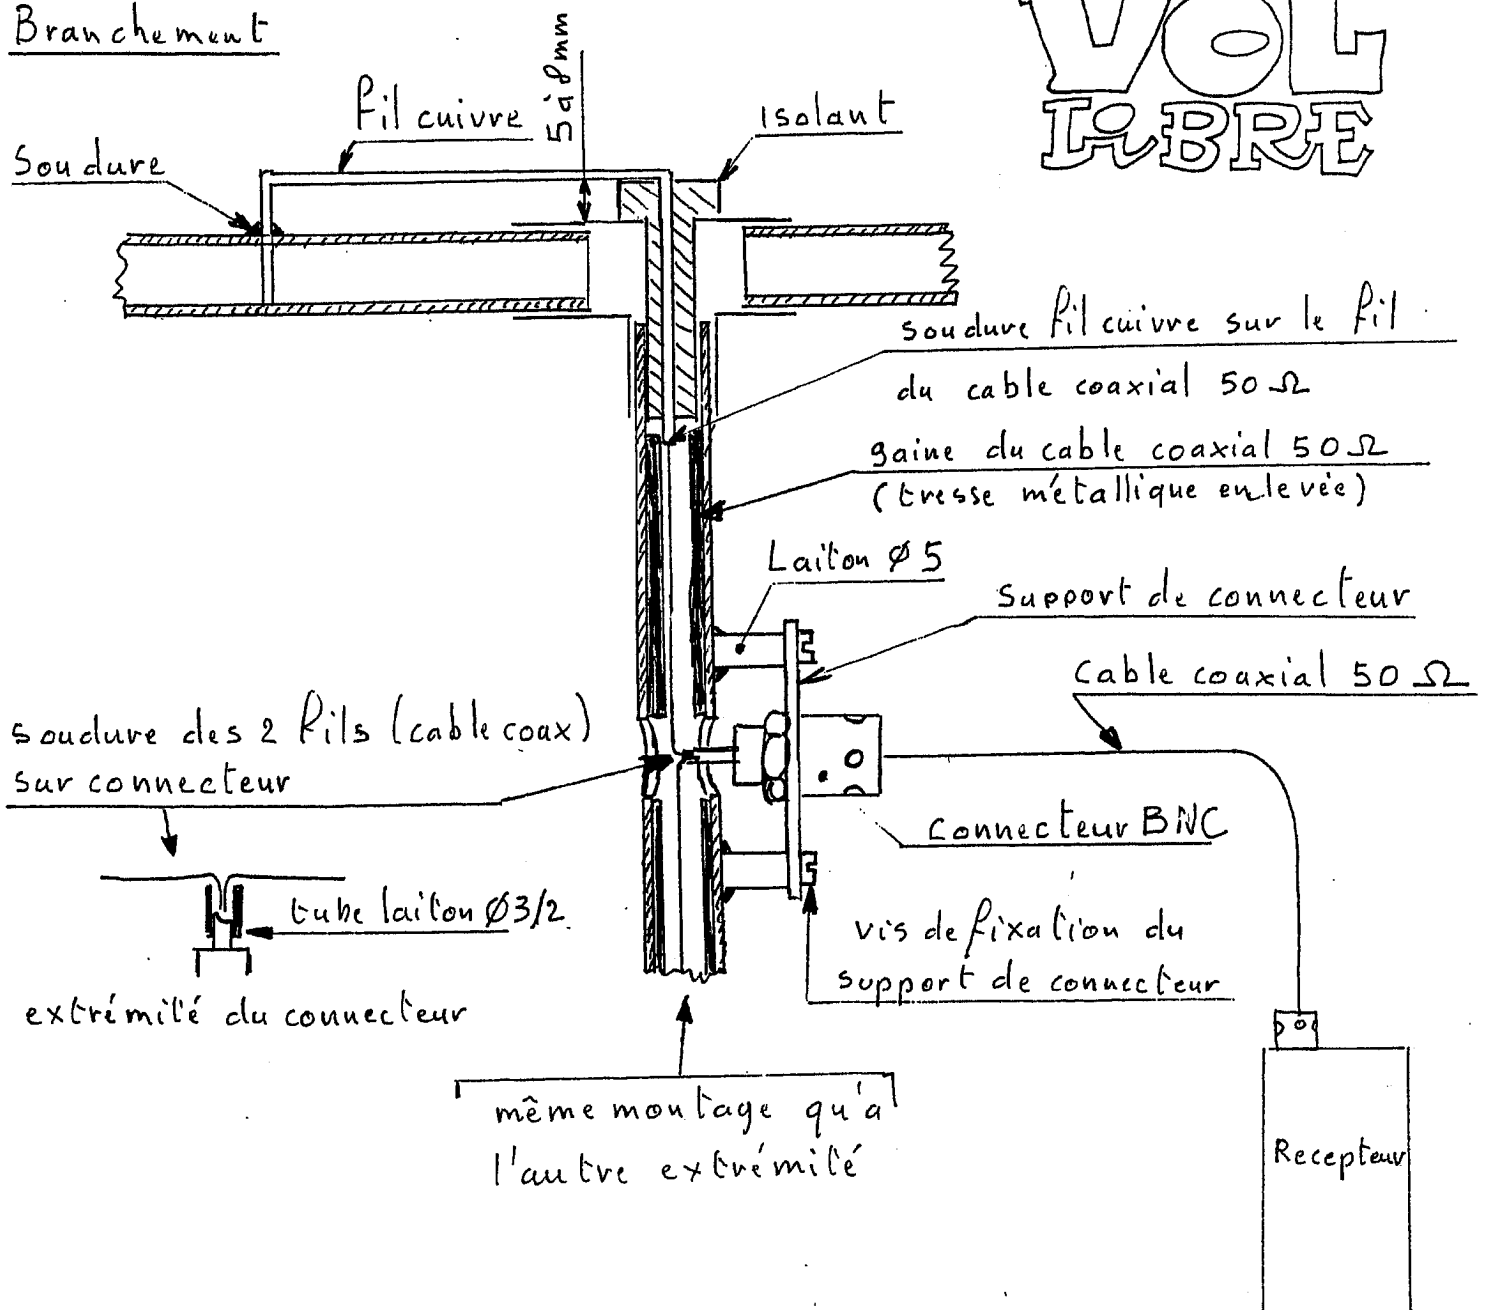 Branchement
VOL
LiBRE
fil cuivre
5 à 8mm
isolant
Soudure
soudure fil cuivre sur le fil
du cable coaxial 50 Ω
gaine du cable coaxial 50 Ω
(tresse métallique enlevée)
Laiton Ø 5
Support de connecteur
Cable coaxial 50 Ω
soudure des 2 fils (cable coax)
sur connecteur
Connecteur BNC
tube laiton Ø3/2
vis de fixation du
support de connecteur
extrémité du connecteur
même montage qu'a
l'autre extrémité
Recepteur